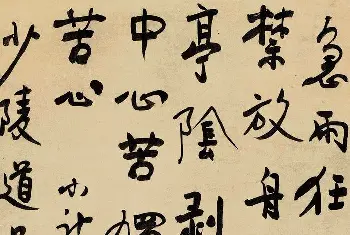 急雨狂
禁放舟
亭陰剥
中心苦
苦心小
少陵道